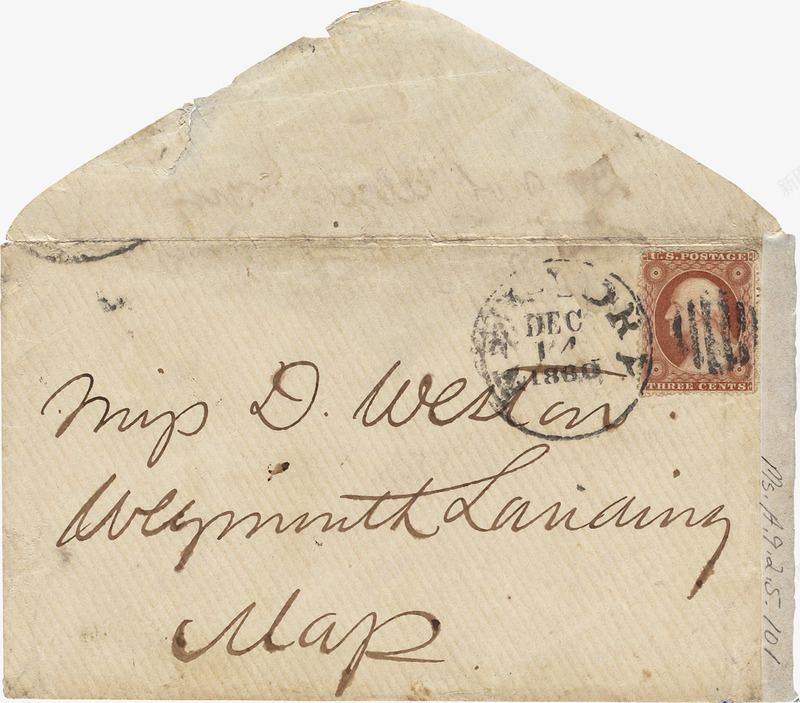 U.S. POSTAGE
THREE CENTS
NEW YORK
DEC
14
1860
Miss D. Weston.
Weymouth Landing
Mass.
Ms.A.9.2.5.101